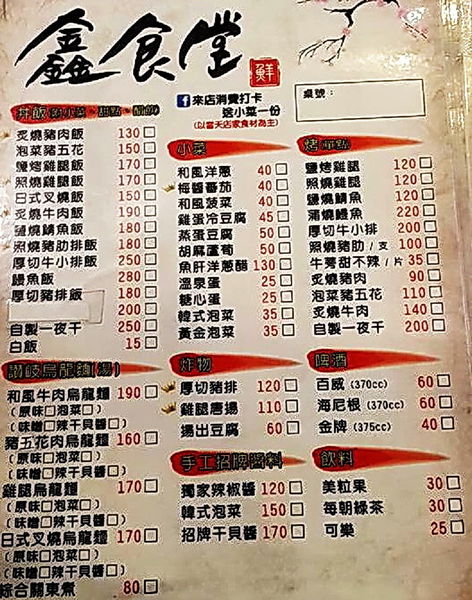 鑫食堂
鮮
來店消費打卡
送小菜一份
(以當天店家食材為主)
桌號：
丼飯(附小菜、甜點、醋飲)
炙燒豬肉飯 130□
泡菜豬五花 150□
鹽烤雞腿飯 170□
照燒雞腿飯 170□
日式叉燒飯 150□
炙燒牛肉飯 190□
鹽燒鯖魚飯 180□
照燒豬肋排飯 180□
厚切牛小排飯 250□
鰻魚飯 280□
厚切豬排飯 180□
200□
自製一夜干 250□
白飯 15□
讚岐烏龍麵(湯)
和風牛肉烏龍麵 190□
(原味□泡菜□)
(味噌□辣干貝醬□)
豬五花肉烏龍麵 160□
(原味□泡菜□)
(味噌□辣干貝醬□)
雞腿烏龍麵 170□
(原味□泡菜□)
(味噌□辣干貝醬□)
日式叉燒烏龍麵 170□
(原味□泡菜□)
(味噌□辣干貝醬□)
綜合關東煮 80□
小菜
和風洋蔥 40□
梅醬番茄 40□
和風菠菜 40□
雞蛋冷豆腐 45□
蒸蛋豆腐 50□
胡麻蘆筍 50□
魚肝洋蔥醋 130□
溫泉蛋 25□
糖心蛋 25□
韓式泡菜 35□
黃金泡菜 35□
炸物
厚切豬排 120□
雞腿唐揚 110□
揚出豆腐 60□
手工招牌醬料
獨家辣椒醬 120□
韓式泡菜 150□
招牌干貝醬 170□
烤(單點)
鹽烤雞腿 120□
照燒雞腿 120□
鹽燒鯖魚 120□
蒲燒鰻魚 220□
厚切牛小排 200□
照燒豬肋/支 100□
牛蒡甜不辣/片 35□
炙燒豬肉 90□
泡菜豬五花 110□
炙燒牛肉 140□
自製一夜干 200□
啤酒
百威(370cc) 60□
海尼根(370cc) 60□
金牌(375cc) 40□
飲料
美粒果 30□
每朝綠茶 30□
可樂 25□